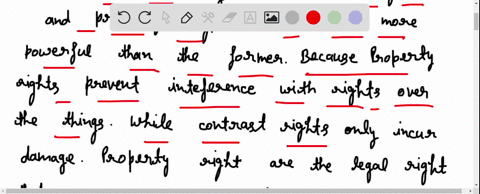 and more
powerful than the former. Because Property
rights prevent inteference with rights over
the things. While contrast rights only incur
damage. Property right are the legal right